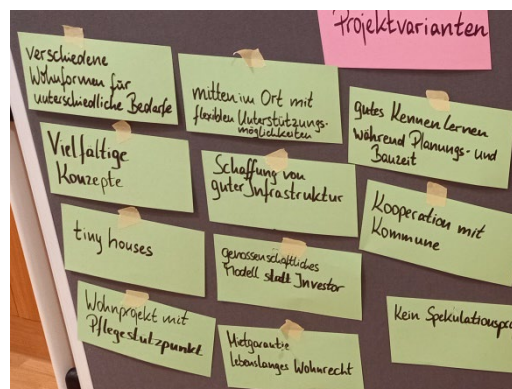 Projektvarianten
verschiedene
Wohnformen für
unterschiedliche Bedarfe
Vielfältige
Konzepte
tiny houses
Wohnprojekt mit
Pflegestutzpunkt
mitten im Ort mit
flexiblen Unterstützungs-
möglichkeiten
Schaffung von
guter Infrastruktur
genossenschaftliches
Modell statt Investor
Mietgarantie
lebenslanges Wohnrecht
gutes Kennenlernen
während Planungs- und
Bauzeit
Kooperation mit
Kommune
Kein Spekulationspro